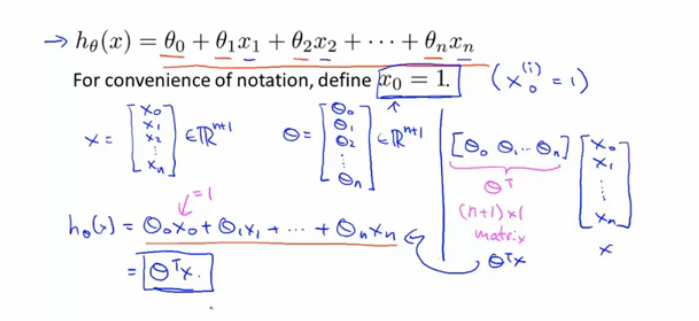 → hθ(x) = θ0 + θ1x1 + θ2x2 + ··· + θnxn
For convenience of notation, define x0 = 1. (x0^(i) = 1)
x = [x0 x1 x2 ⋮ xn] ∈ ℝ^(n+1) θ = [θ0 θ1 θ2 ⋮ θn] ∈ ℝ^(n+1) [θ0 θ1 ··· θn] [x0 x1 ⋮ xn]
θ^T
= 1
(n+1) × 1
matrix
hθ(x) = θ0x0 + θ1x1 + ··· + θnxn
θ^T x x
= θ^T x.